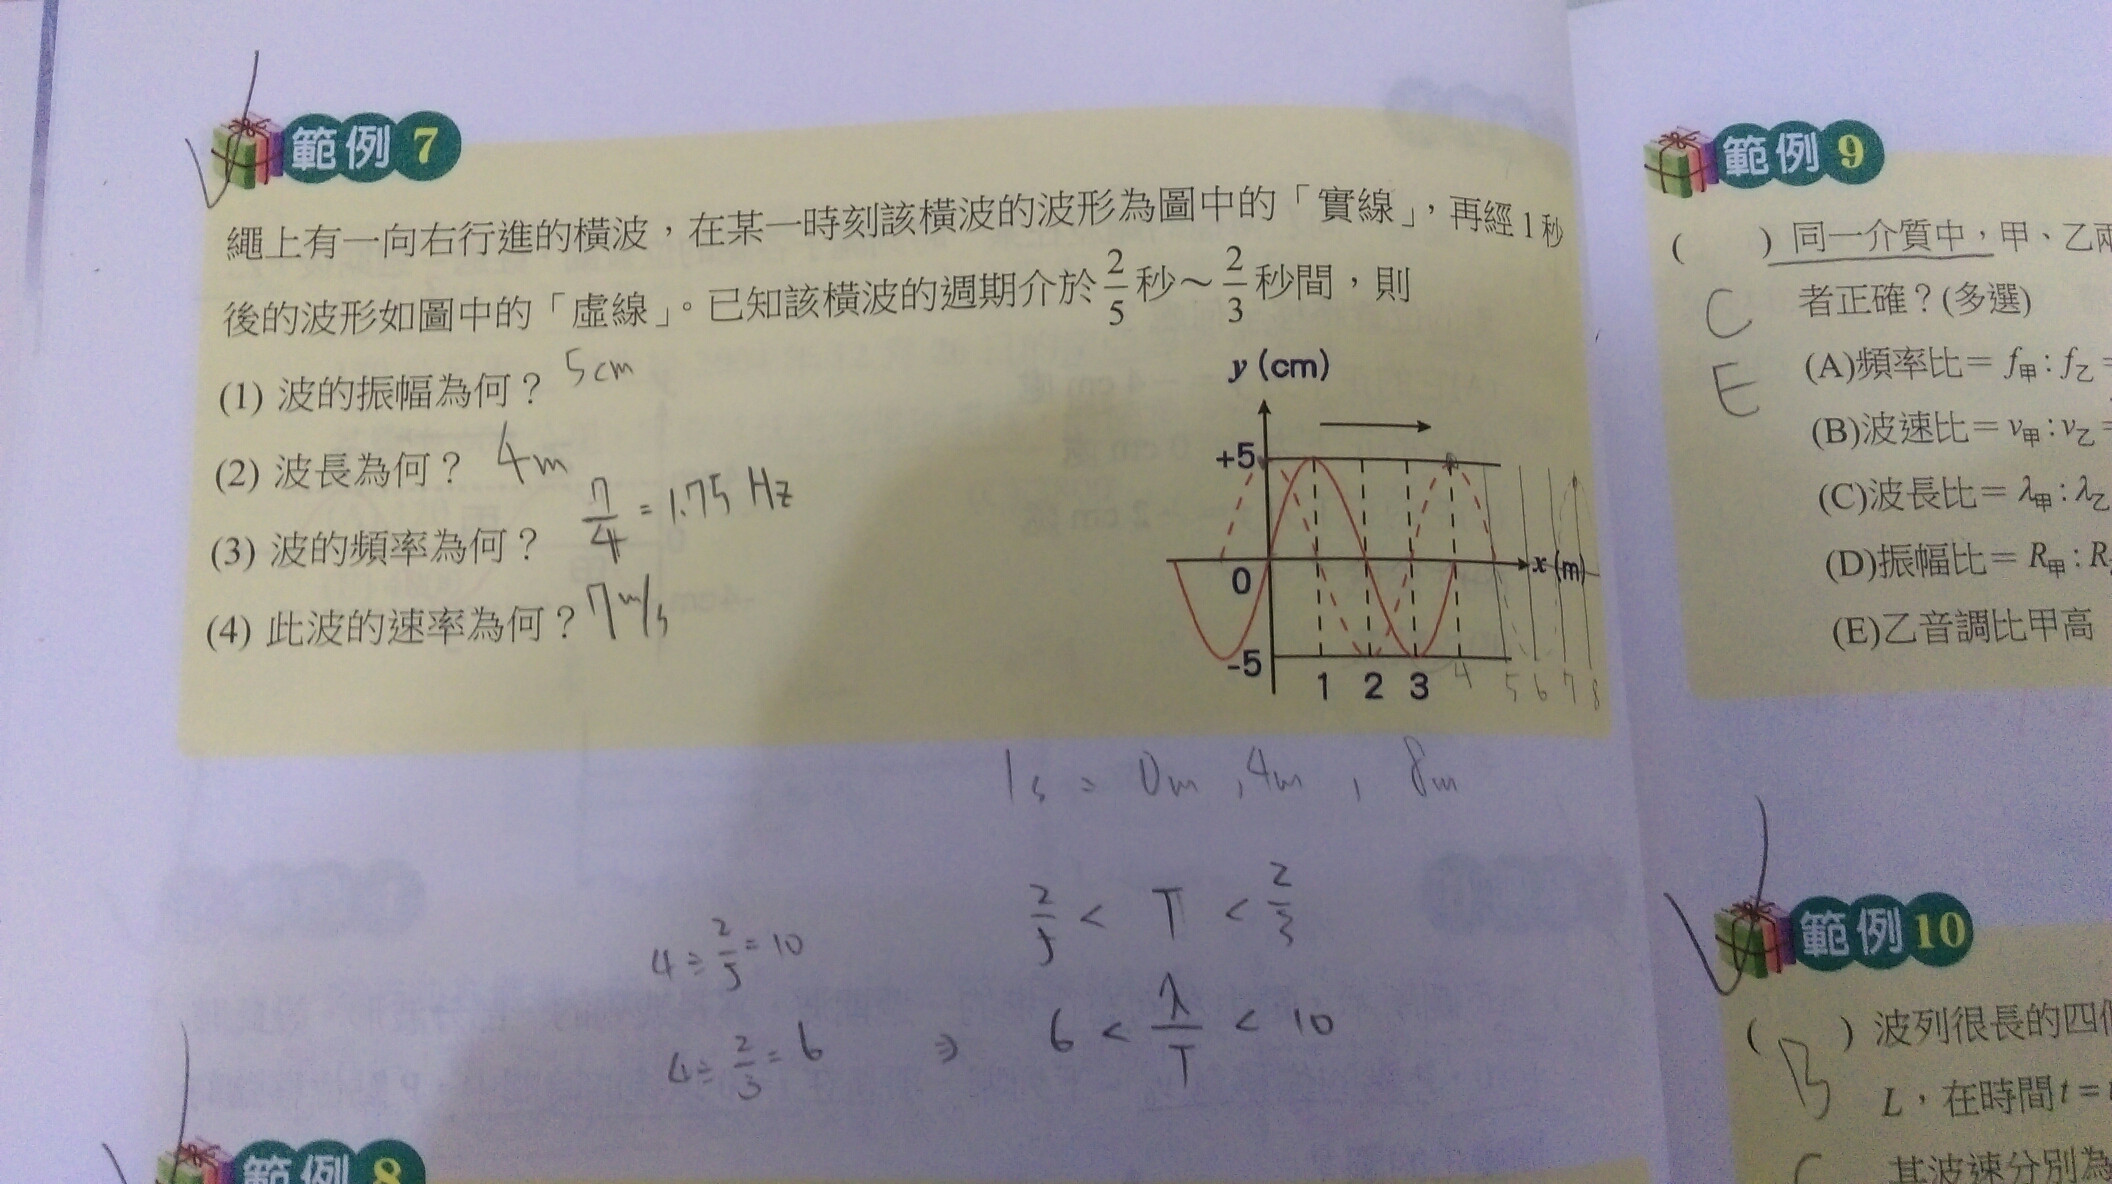 範例 7
繩上有一向右行進的橫波，在某一時刻該橫波的波形為圖中的「實線」，再經1秒
後的波形如圖中的「虛線」。已知該橫波的週期介於2/5秒～2/3秒間，則
(1) 波的振幅為何？ 5cm
(2) 波長為何？ 4m
(3) 波的頻率為何？ 7/4 = 1.75 Hz
(4) 此波的速率為何？ 7 m/s
y (cm)
+5
0
x (m)
-5
1 2 3 4 5 6 7 8
1s = 0m , 4m , 8m
2/5 < T < 2/3
4÷2/5=10
4÷2/3=6 ⇒ 6 < λ/T < 10
範例 8
範例 9
( ) 同一介質中，甲、乙兩
C 者正確？(多選)
E (A)頻率比＝f甲：f乙＝
(B)波速比＝v甲：v乙＝
(C)波長比＝λ甲：λ乙
(D)振幅比＝R甲：R
(E)乙音調比甲高
範例 10
( ) 波列很長的四個
B L，在時間t＝
其波速分別為